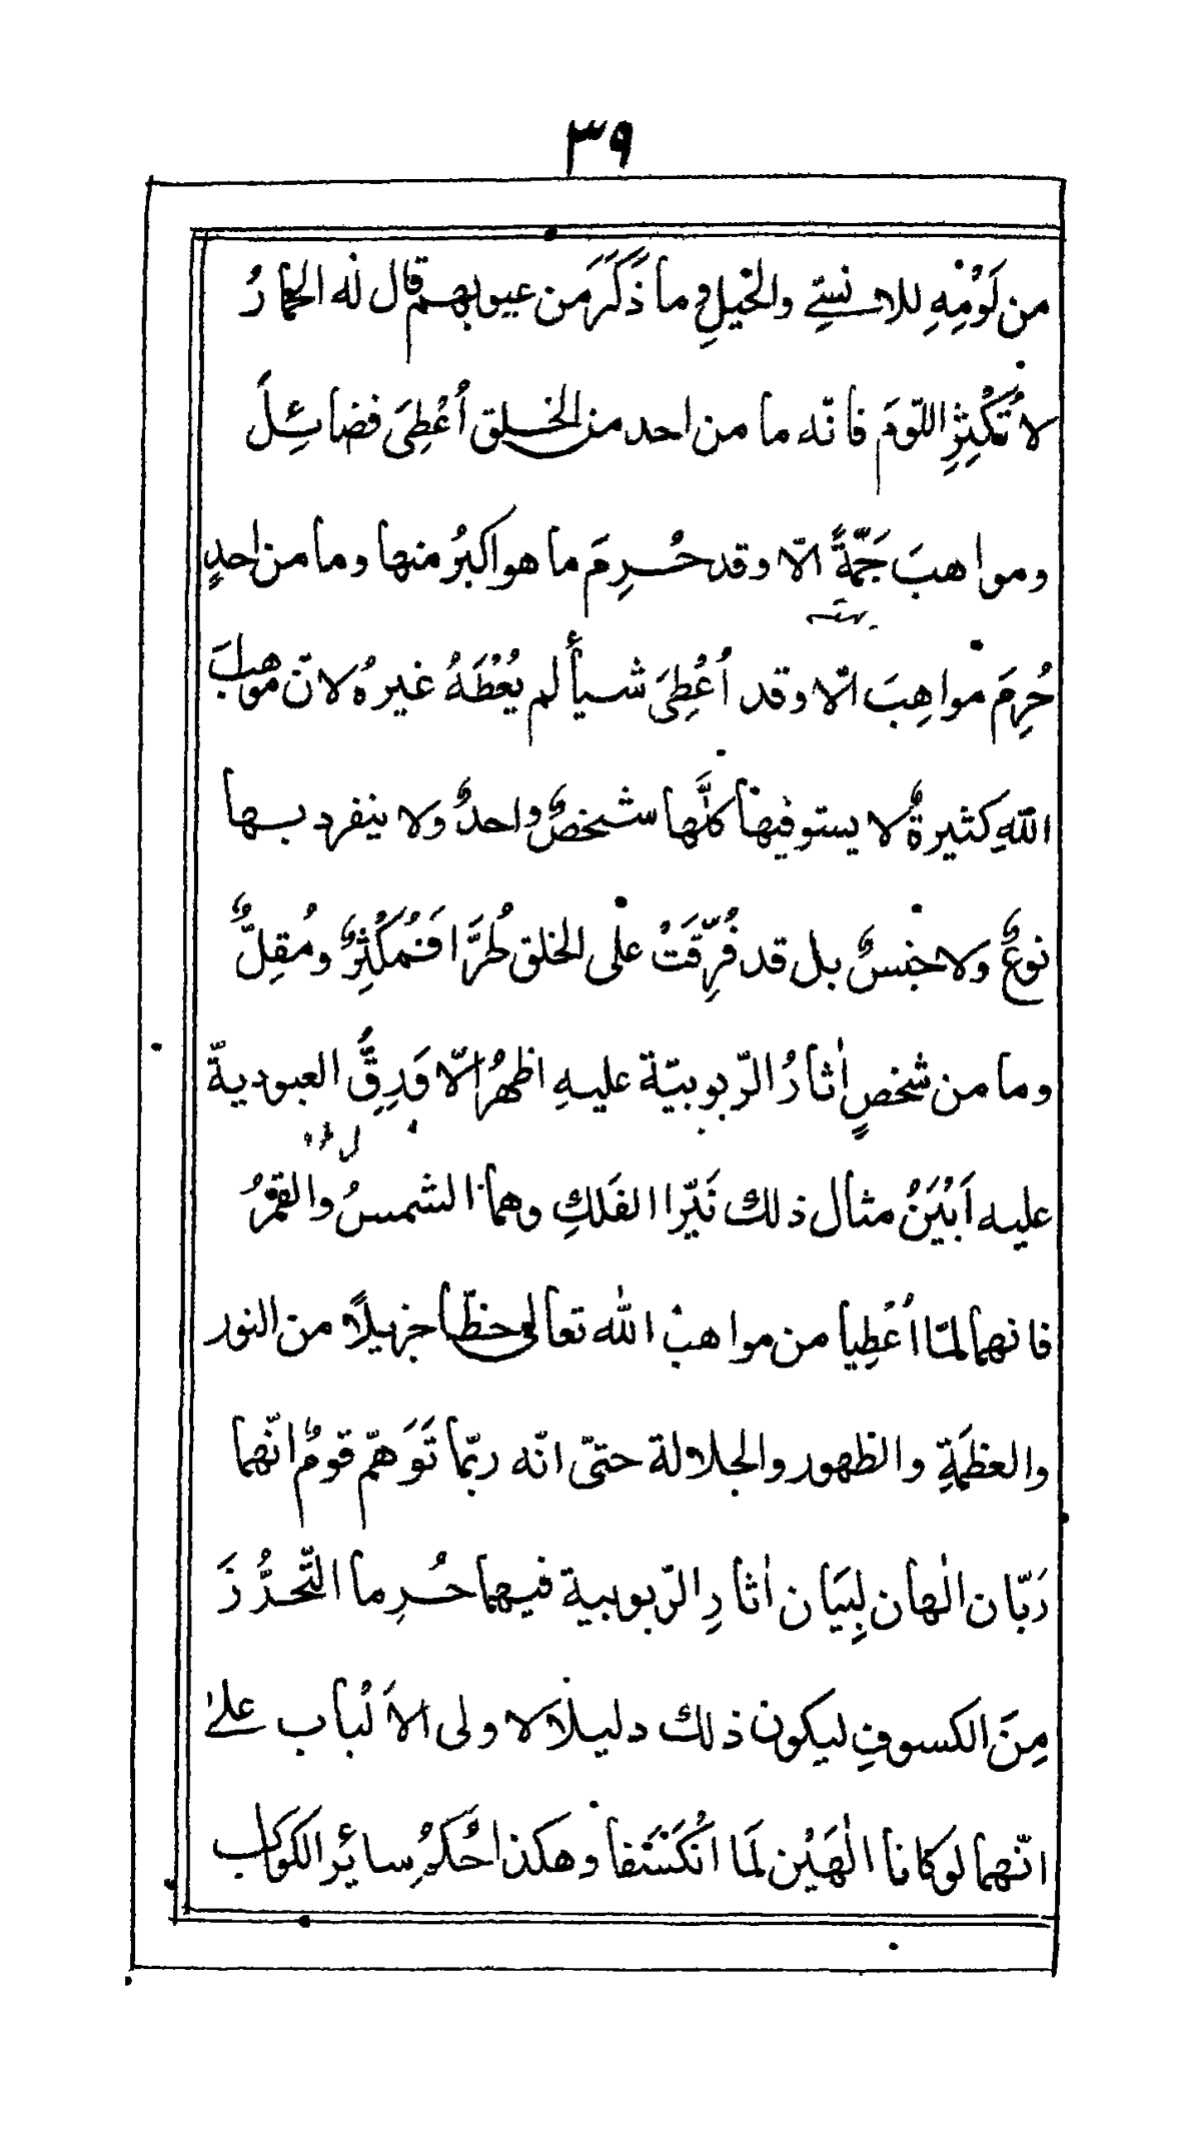 ٣٩
من لَوْمِهِ للانسيّ والخيلِ وما ذَكَرَ من عيوبهم قال له الحمارُ
لا تُكْثِرِ اللّومَ فانّه ما من احد من الخلق اُعْطِىَ فضائِلَ
ومواهبَ جَمَّةً الّا وقد حُرِمَ ما هو اكبرُ منها وما من احدٍ
حُرِمَ مواهِبَ الّا وقد اُعْطِىَ شيأً لم يُعْطَهُ غيرهُ لانّ مواهبَ
اللّهِ كثيرةٌ لا يستوفيها كلَّها شخصٌ واحدٌ ولا ينفرد بها
نوعٌ ولا جنسٌ بل قد فُرِّقَتْ على الخلق طُرًّا فَمُكْثِرٌ ومُقِلٌّ
وما من شخصٍ اٰثارُ الرّبوبيّة عليهِ اظهرُ الّا وَرِقُّ العبوديةّ
عليه اَبْيَنُ مثال ذلك نَيِّرا الفَلَكِ وهما الشمسُ والقمرُ
فانهما لمّا اُعْطِيا من مواهب اللّٰه تعالى حظّا جزيلًا من النور
والعظمَةِ والظهور والجلالة حتىّ انّه ربّما تَوَهّم قومٌ انّهما
رَبّان الٰهان لِبَيَان اٰثارِ الرّبوبية فيهما حُرِما التّحرُّزَ
مِنَ الكسوفِ ليكون ذلك دليلًا لاولى الاَلْباب علىٰ
انّهما لو كانا الٰهَيْن لَمَا انْكَسَفا وهكذا حُكمُ سائِر الكواكب